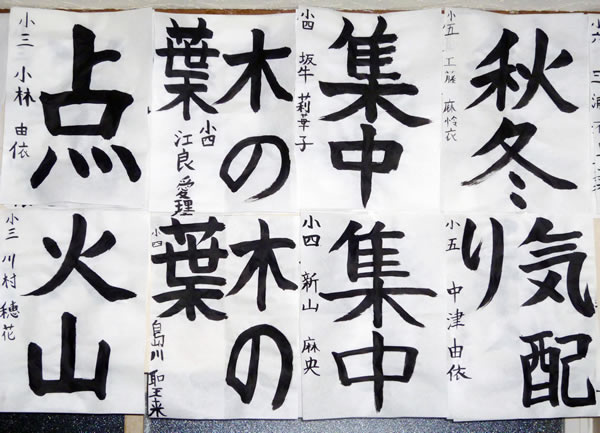 秋冬
小五 工藤 麻怜衣
集中
小四 坂牛 莉華子
木の
葉
小四 江良 愛理
点
小三 小林 由依
気配
り
小五 中津 由依
集中
小四 新山 麻央
木の
葉
小四 島川 聖来
火山
小三 川村 穂花